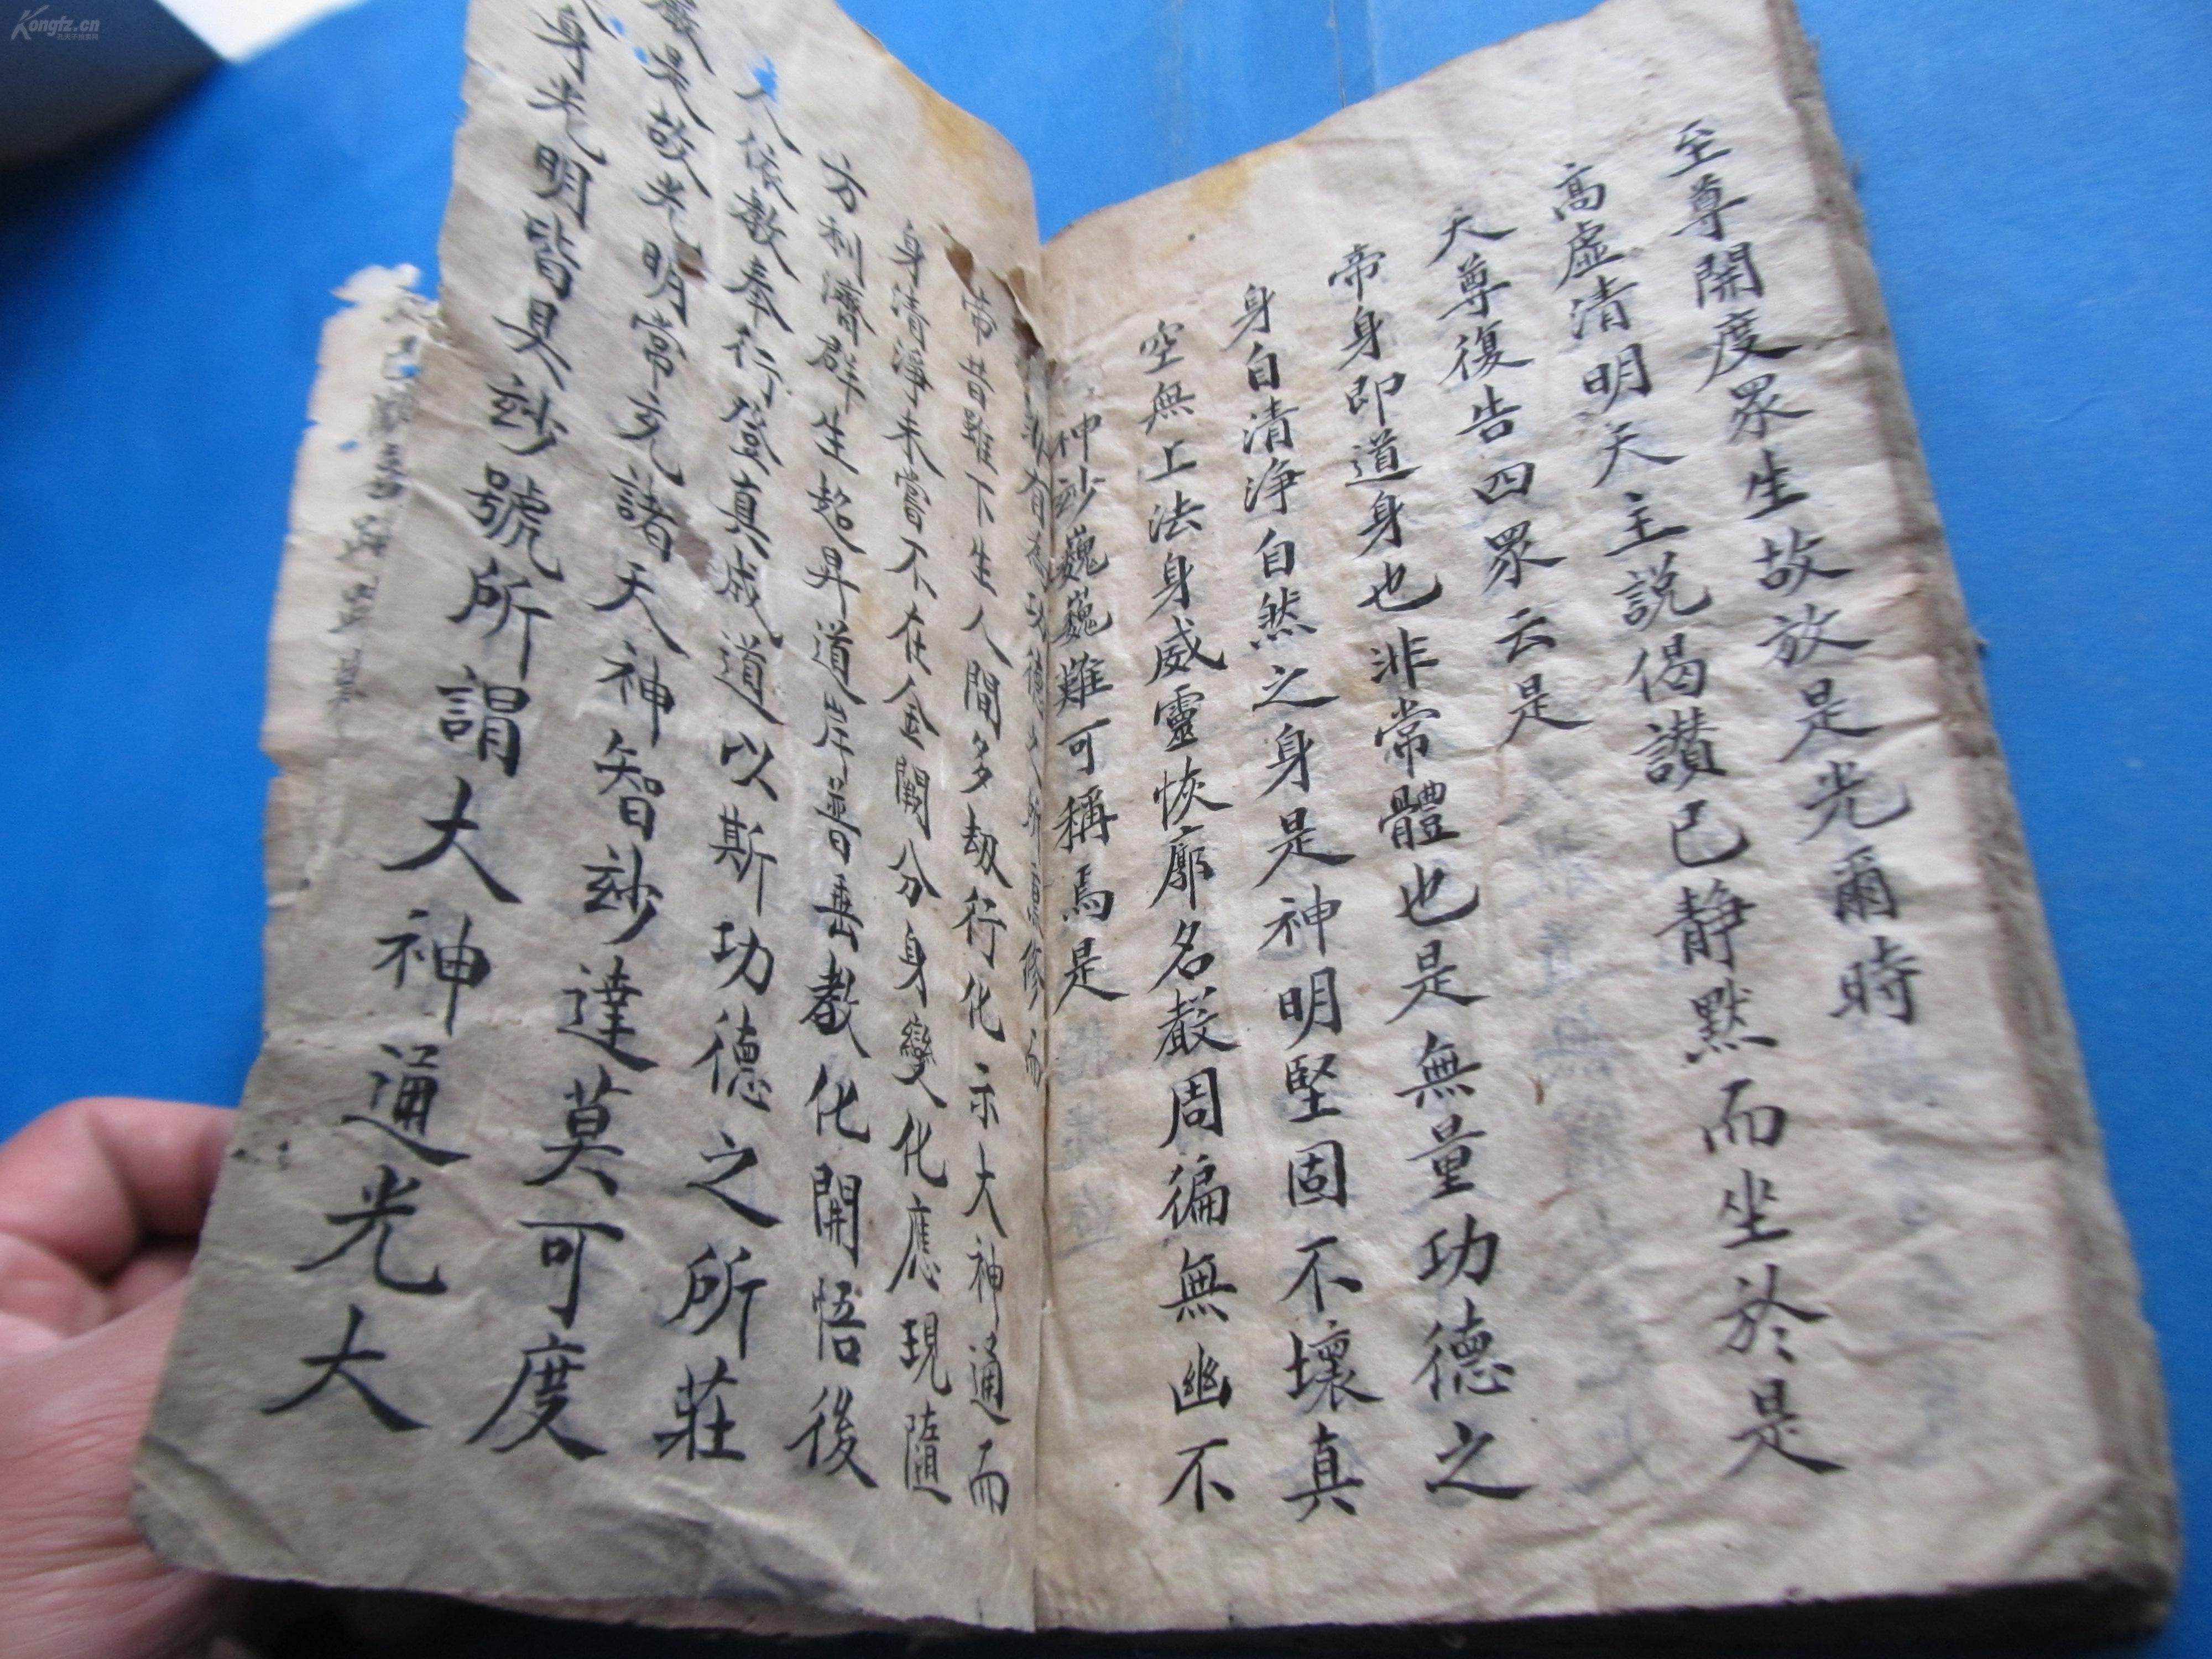 至尊開度眾生故放是光爾時
高虛清明天主說偈讚已靜默而坐於是
天尊復告四眾云是
帝身即道身也非常體也是無量功德之
身自清淨自然之身是神明堅固不壞真
空無上法身威靈恢廓名聲周徧無幽不
神玅巍巍難可稱焉是
有為功德之所熏修而
帝昔雖下生人間多劫行化示大神通而
身清淨未嘗不在金闕分身變化應現隨
方利濟群生超昇道岸普垂教化開悟後
人依教奉行登真成道以斯功德之所莊
嚴是故光明常充諸天神智玅達莫可度
身光明皆具玅號所謂大神通光大
Kongfz.cn